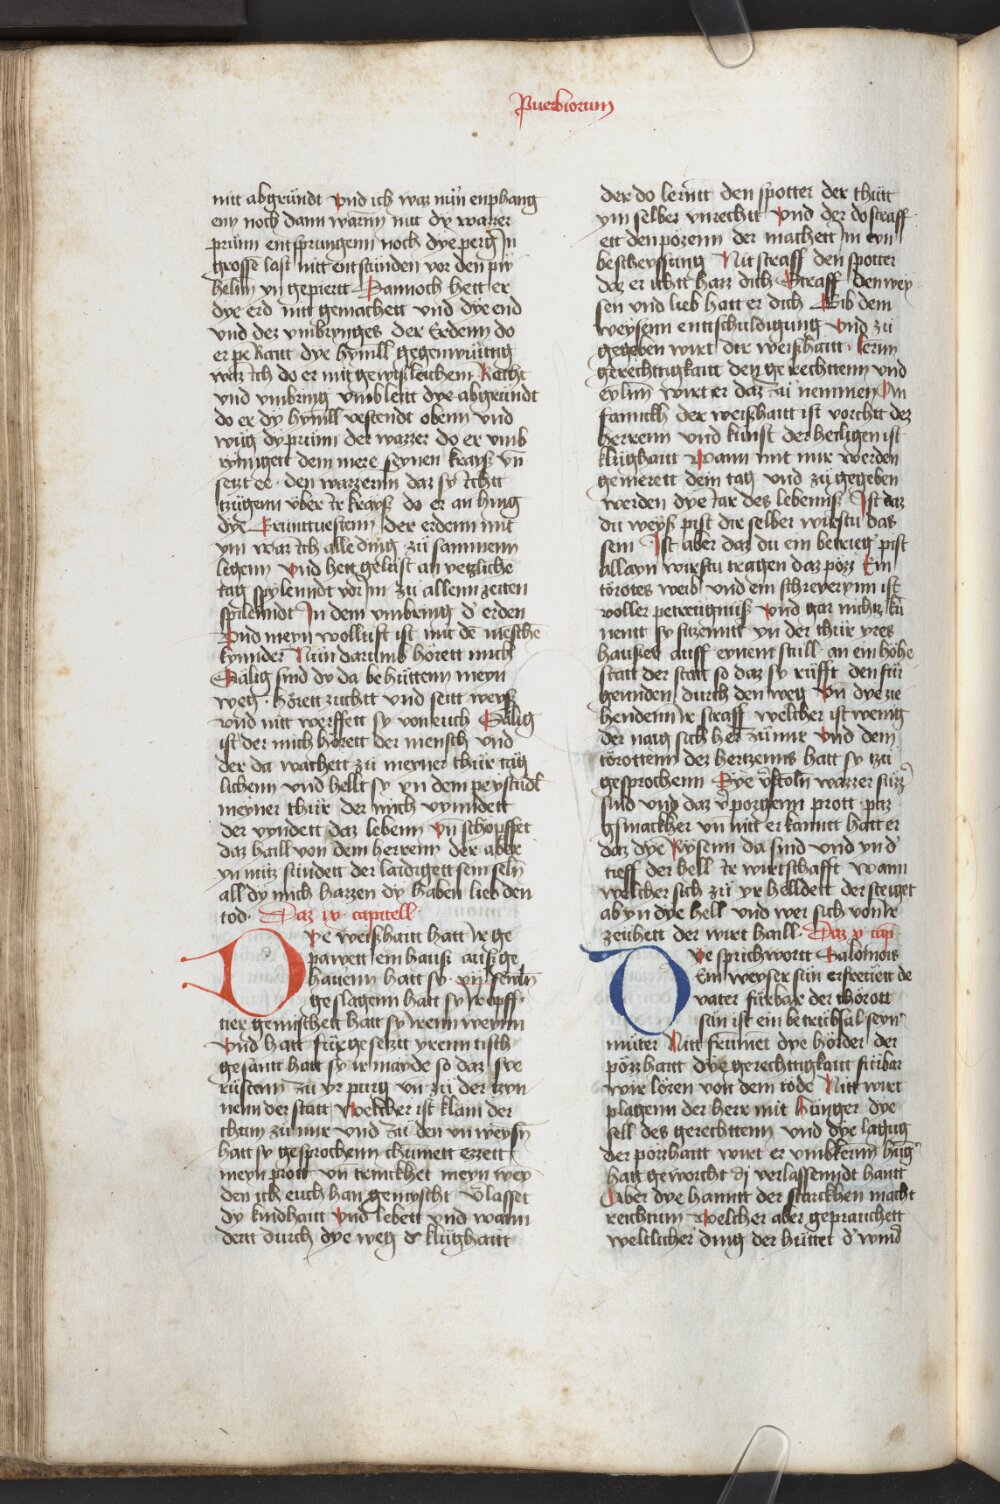 Puerbiorum
nitt abgründt vnd ich waz nün enphang
enn noch dann warnn nitt dy wazzer
prünn entsprungenn noch dye perg In
grosse last nitt entstünden vor den pü
helnn yn gepiertt Dannoch hett er
dye erd nitt gemachett vnd dye end
vnd dez vmbrynges der Erdenn do
er pe raitt dye hymill gegenwürttig
waz ich do er mit gewißleichem Recht
vnd vmbring vmbleitt dye abgründt
do er dy hymill vestendt obenn vnd
wüg dy prünn der wazzer do er vmb
ryngett dem mere seynen krayß vn
setzt ee den wazzernn daz sy ichtt
trügenn vber ir krayß do er an hing
dye Grünttuestenn der erdenn mit
ym waz ich alle ding zü samnenn
legenn vnd hett gelüst an yetzliche
tag spylenndt vor Im zü allenn zeiten
spilenndt In dem vmbring d erden
vnd meyn wollust ist mit de mesche
kynnder Nün darumb hörett mich
Sälig sind dy da behüttenn meyn
weg hörett zuchtt vnd seitt weyß
vnd nitt werffett sy von euch Sälig
ist der mich hörett der mensch vnd
der da wachett zü meyner thür täg
lichenn vnd hellt sy yn dem peystüdl
meyner thür der mich vynndett
der vyndett daz lebenn vn schöpffet
daz haill von dem herrenn der aber
yn mir sündett der laidigett sein seln
all dy mich hazzen dy haben lieb den
tod Daz ix capitell
Dye weißhaitt hatt Ir ge
pawett ein hauß auß ge
hauenn hatt sy vn senln
geslagenn hatt sy Ir opff
tier gemischett hatt sy Irenn weynn
vnd hatt für gesetzt yrenn tisch
gesantt hatt sy ir mayde so daz sye
rüstenn zü yr purg vn zü der tzyn
nenn der statt Welcher ist klain der
chum zü mir vnd zü den vnweysn
hatt sy gesprochenn chumett ezzett
meyn prott vn trinckhet meyn wey
den ich euch han gemyscht Vlasset
dy kindhaitt vnd lebett vnd wann
dertt durch dye weg d klüghaitt
der do lerntt den spotter der thütt
ym selber vnrechtt vnd der do straff
ett den pözenn der machett Im eyn
bescheyssung Nit straff den spotter
daz er ichtt hazz dich Straff den wey
sen vnd lieb hatt er dich Gib dem
weysenn entschuldigung vnd zü
gegeben wirt dir weißhaitt lernn
gerechtigkaitt den gerechttenn vnd
eylnn wirt er daz zü nemmen Im
fannckh der weißhaitt ist vorchtt dez
herrenn vnd künst der heiligen ist
klüghaitt Wann mit mir werden
gemerett dem tag vnd zü gegeben
werden dye iar des lebenns Ist daz
du weyß pist dir selber wirstu das
sein Ist aber daz du ein betrieg pist
allayn wirstu tragen daz pözz Ein
törotes weib vnd ein schreyerynn ist
voller petreügnüß vnd gar nichtz kü
nentt sy sitzenntt yn der thür yres
haußes auff eynem stüll an ein höhe
statt der statt so daz sy rüfft den für
genden durch den weg vn dye zie
hendenn Ir straff welcher ist wenig
der naig sich her zü mir vnd dem
törottenn der hertzenns hatt sy tzü
gesprochenn Dye vstoln wazzer süzz
sind vnd daz vporgenn prott paz
gsmackher vn nit erkanntt hatt er
daz dye Rysenn da sind vnd yn d
tieff der hell ir wirtschafft wann
welcher sich zü yr helldett der steiget
ab yn dye hell vnd wer sich von Ir
zeühett der wirt haill Daz x cap
Dye sprichwortt Salomons
Ein weyser sün erfreüett de
vater fürbar der thörott
sün ist ein betrübsal seyn
müter Nitt frümet dye hörder der
pözzhaitt dye gerechttigkaitt fürbar
wir lösen von dem tode Nitt wirt
plagenn der herr mit hünger dye
sell des gerechttenn vnd dye lagüg
der pozzhaitt wirt er vmbkernn hüg
hatt geworcht di verlassenndt hantt
Aber dye hanntt der starckhen macht
reichtum welcher aber geprauchett
weltlicher ding der hüttet d wind